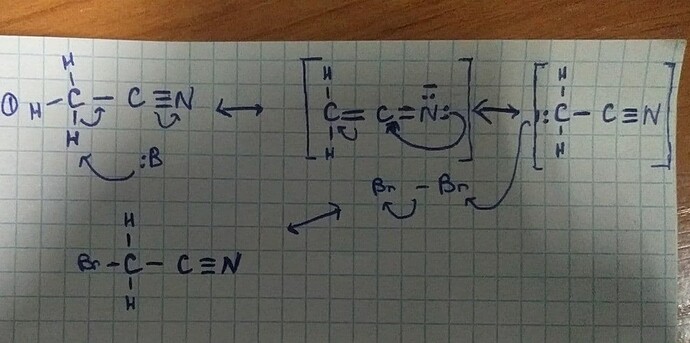 ① H H H H
H - C - C ≡ N ↔ [ C = C = N̈: ] ↔ [ :C - C ≡ N ]
H H H
:B
Br - Br
H
Br - C - C ≡ N
H